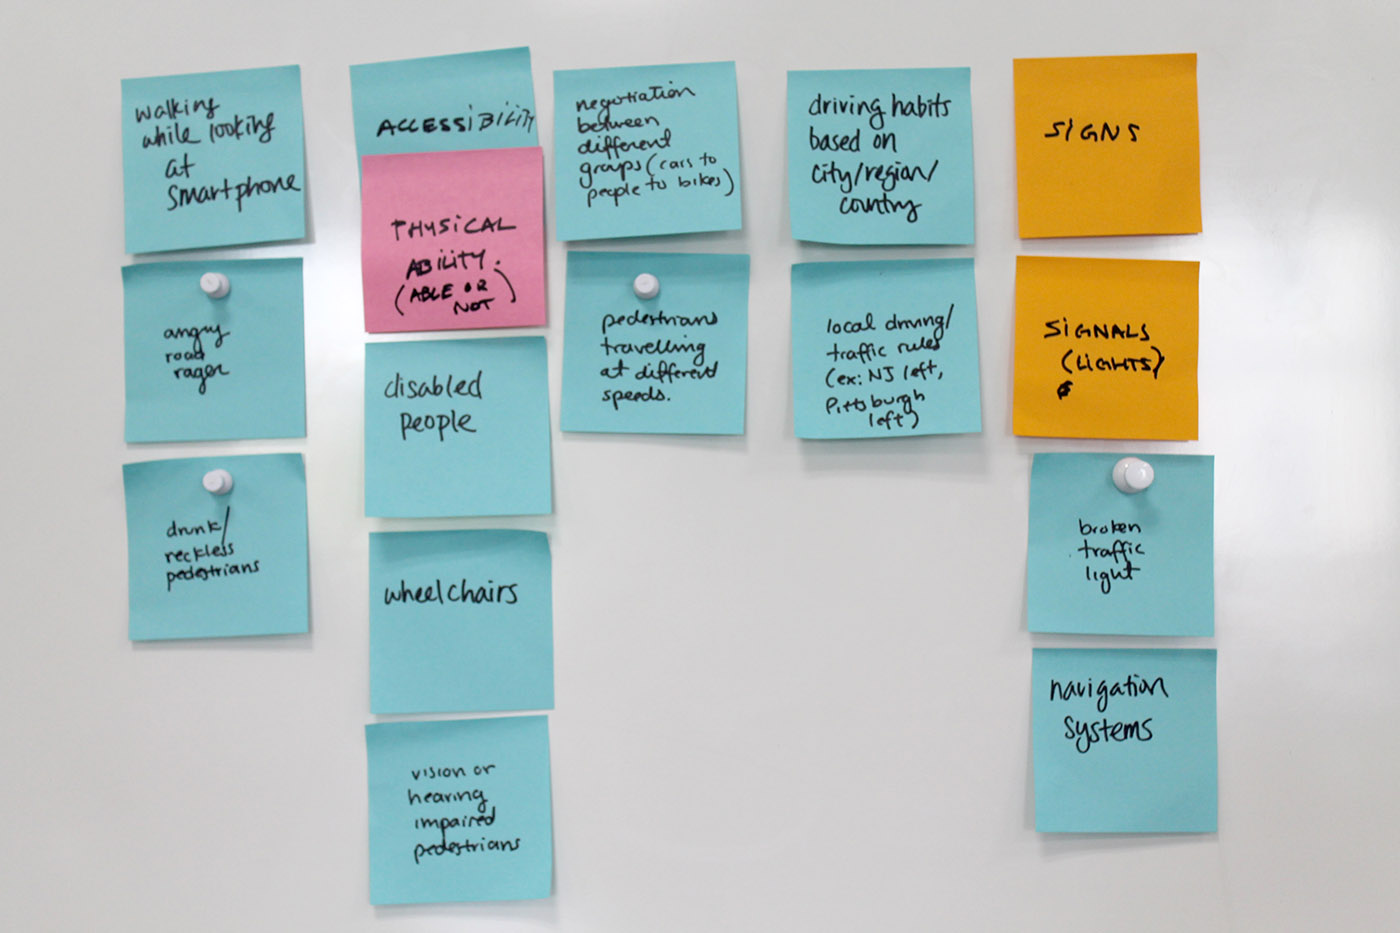 walking
while looking
at
smartphone
angry
road
rager
drunk/
reckless
pedestrians
ACCESSIBILITY
PHYSICAL
ABILITY.
(ABLE OR
NOT)
disabled
people
wheelchairs
vision or
hearing
impaired
pedestrians
negotiation
between
different
groups (cars to
people to bikes)
pedestrians
travelling
at different
speeds.
driving habits
based on
city/region/
country
local driving/
traffic rules
(ex: NJ left,
Pittsburgh
left)
SIGNS
SIGNALS
(LIGHTS)
broken
traffic
light
navigation
systems